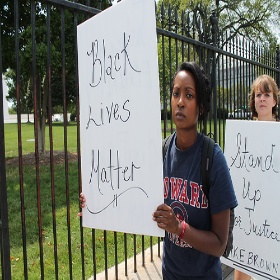 Black
Lives
Matter
HOWARD
Stand
Up
for Justice
MIKE BROWN